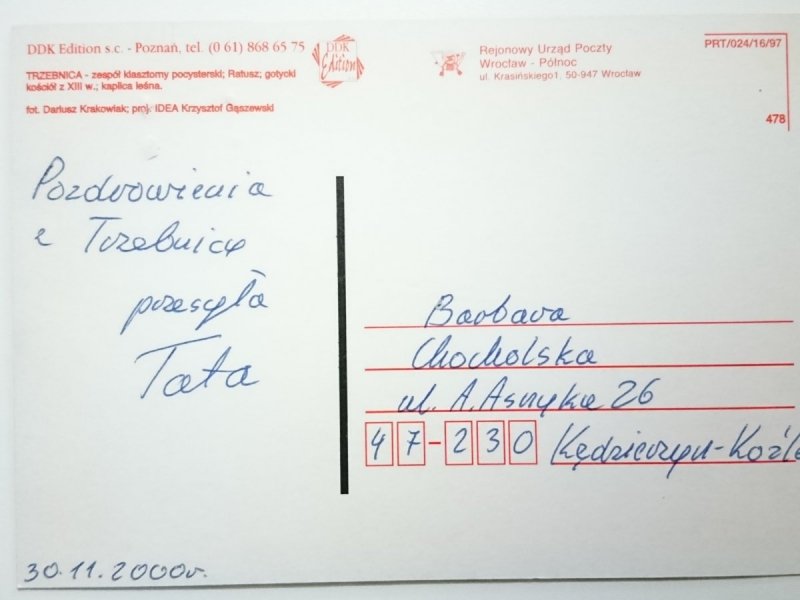 DDK Edition s.c. - Poznań, tel. (0 61) 868 65 75
DDK
Edition
TRZEBNICA - zespół klasztorny pocysterski; Ratusz; gotycki
kościół z XIII w.; kaplica leśna.
fot. Dariusz Krakowiak; proj. IDEA Krzysztof Gąszewski
Rejonowy Urząd Poczty
Wrocław - Północ
ul. Krasińskiego1. 50-947 Wrocław
PRT/024/16/97
478
Pozdrowienia
z Trzebnicy
przesyła
Tata
30.11.2000r.
Barbara
Chocholska
ul. A. Asnyka 26
47-230 Kędzierzyn-Koźle